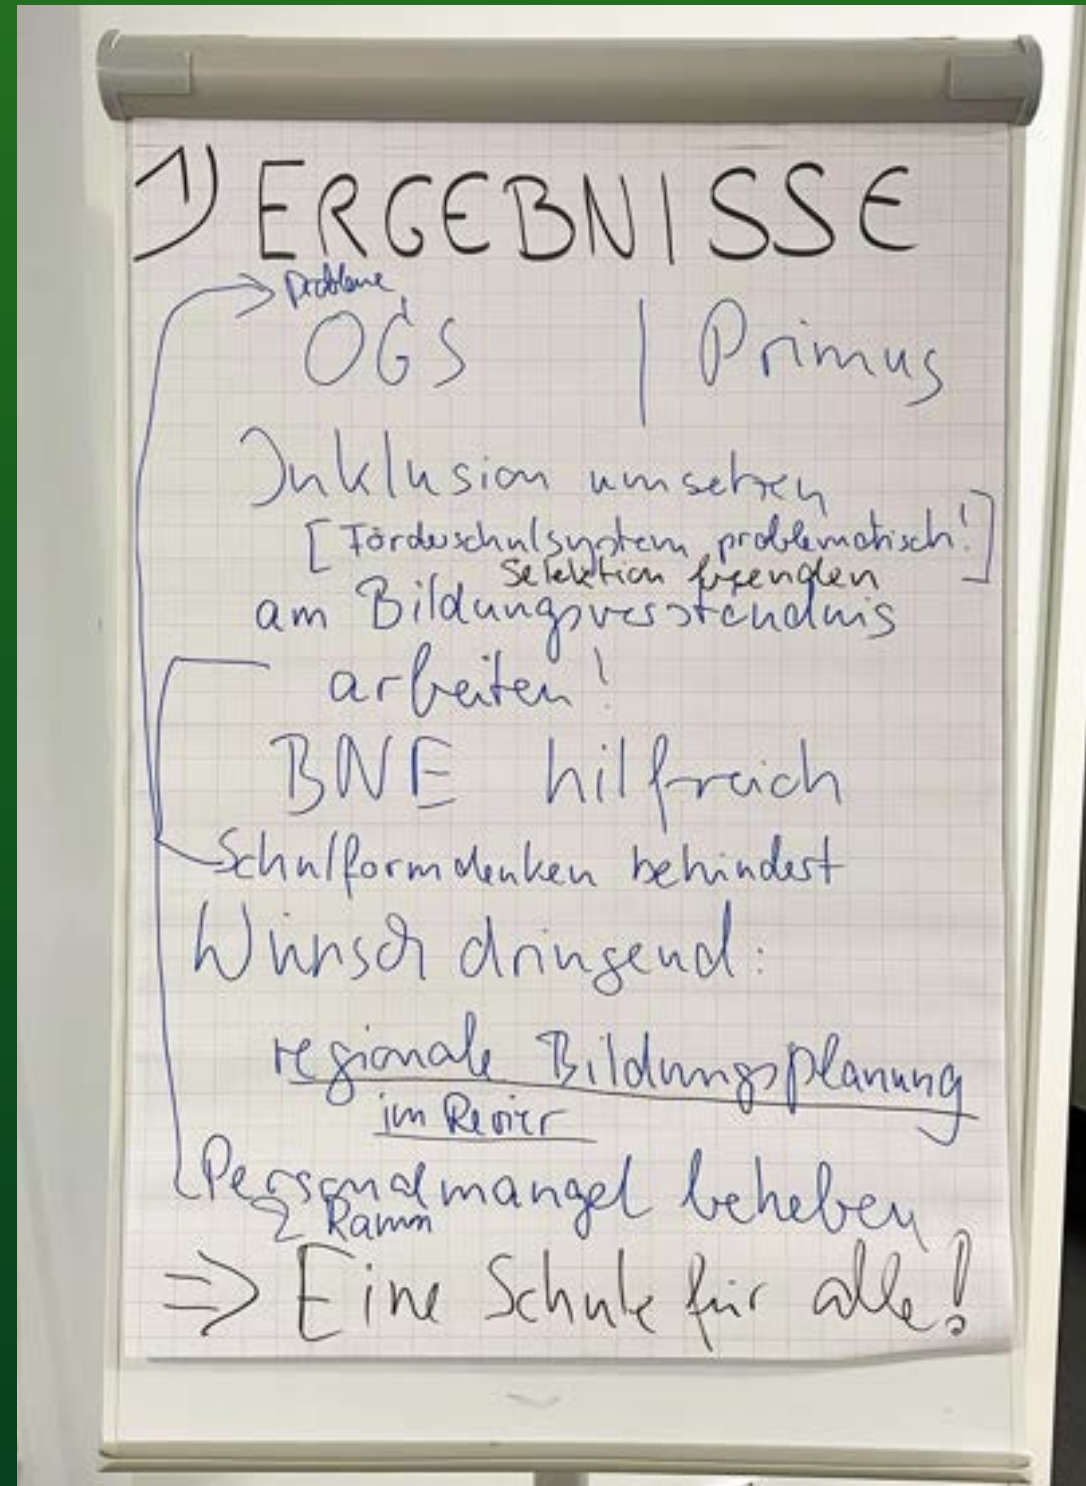 1) ERGEBNISSE
Probleme
OGS | Primus
Inklusion umsetzen
[Förderschulsystem problematisch!]
Selektion beenden
am Bildungsverständnis
arbeiten!
BNE hilfreich
Schulformdenken behindert
Wunsch dringend:
regionale Bildungsplanung
im Revier
Personalmangel beheben
Raum
=> Eine Schule für alle!